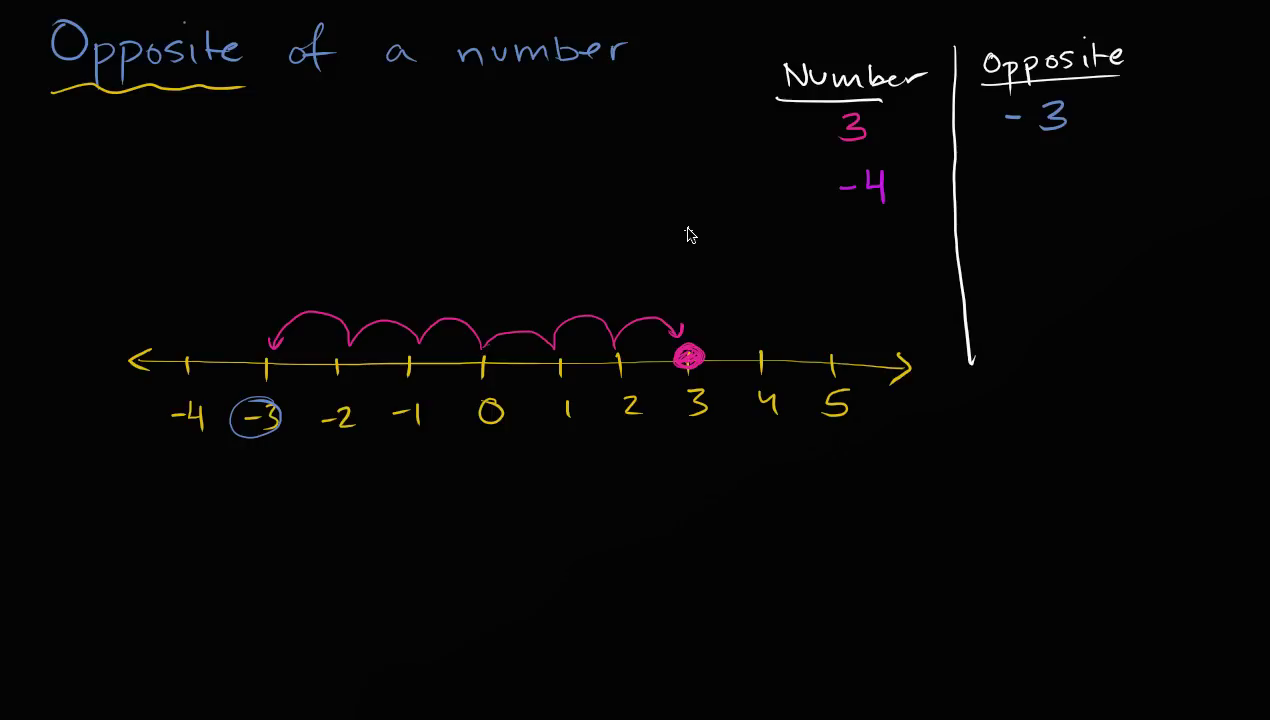 Opposite of a number
Number Opposite
3 -3
-4
-4 -3 -2 -1 0 1 2 3 4 5